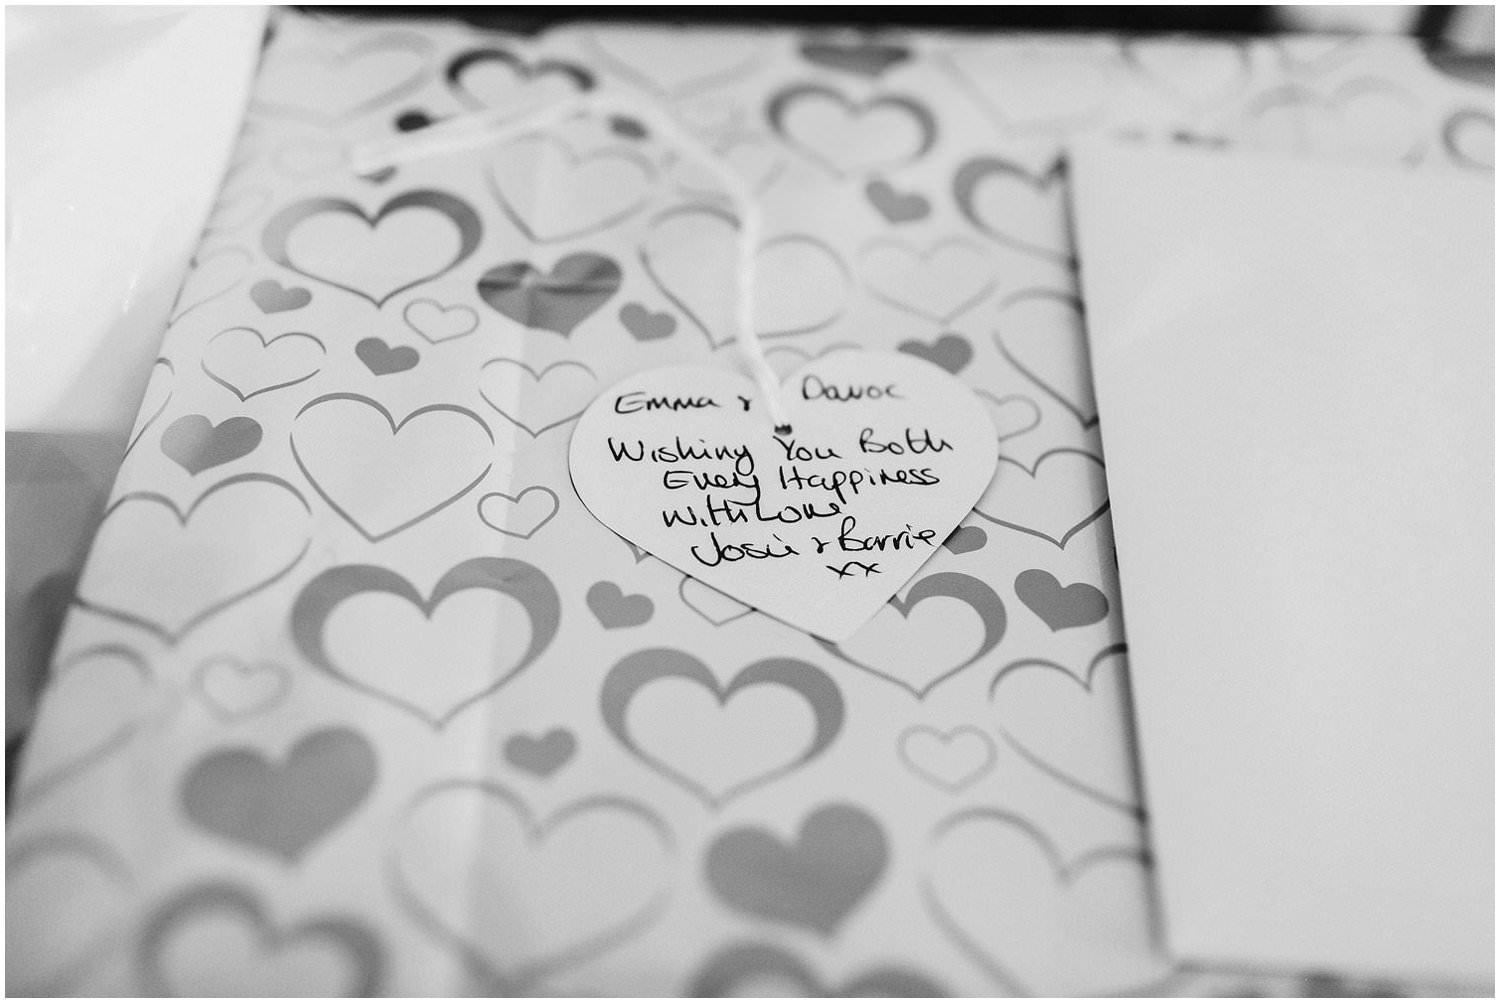 Emma &
Wishing You Both
Every Happiness
With Love
Josie & Barrie
xx